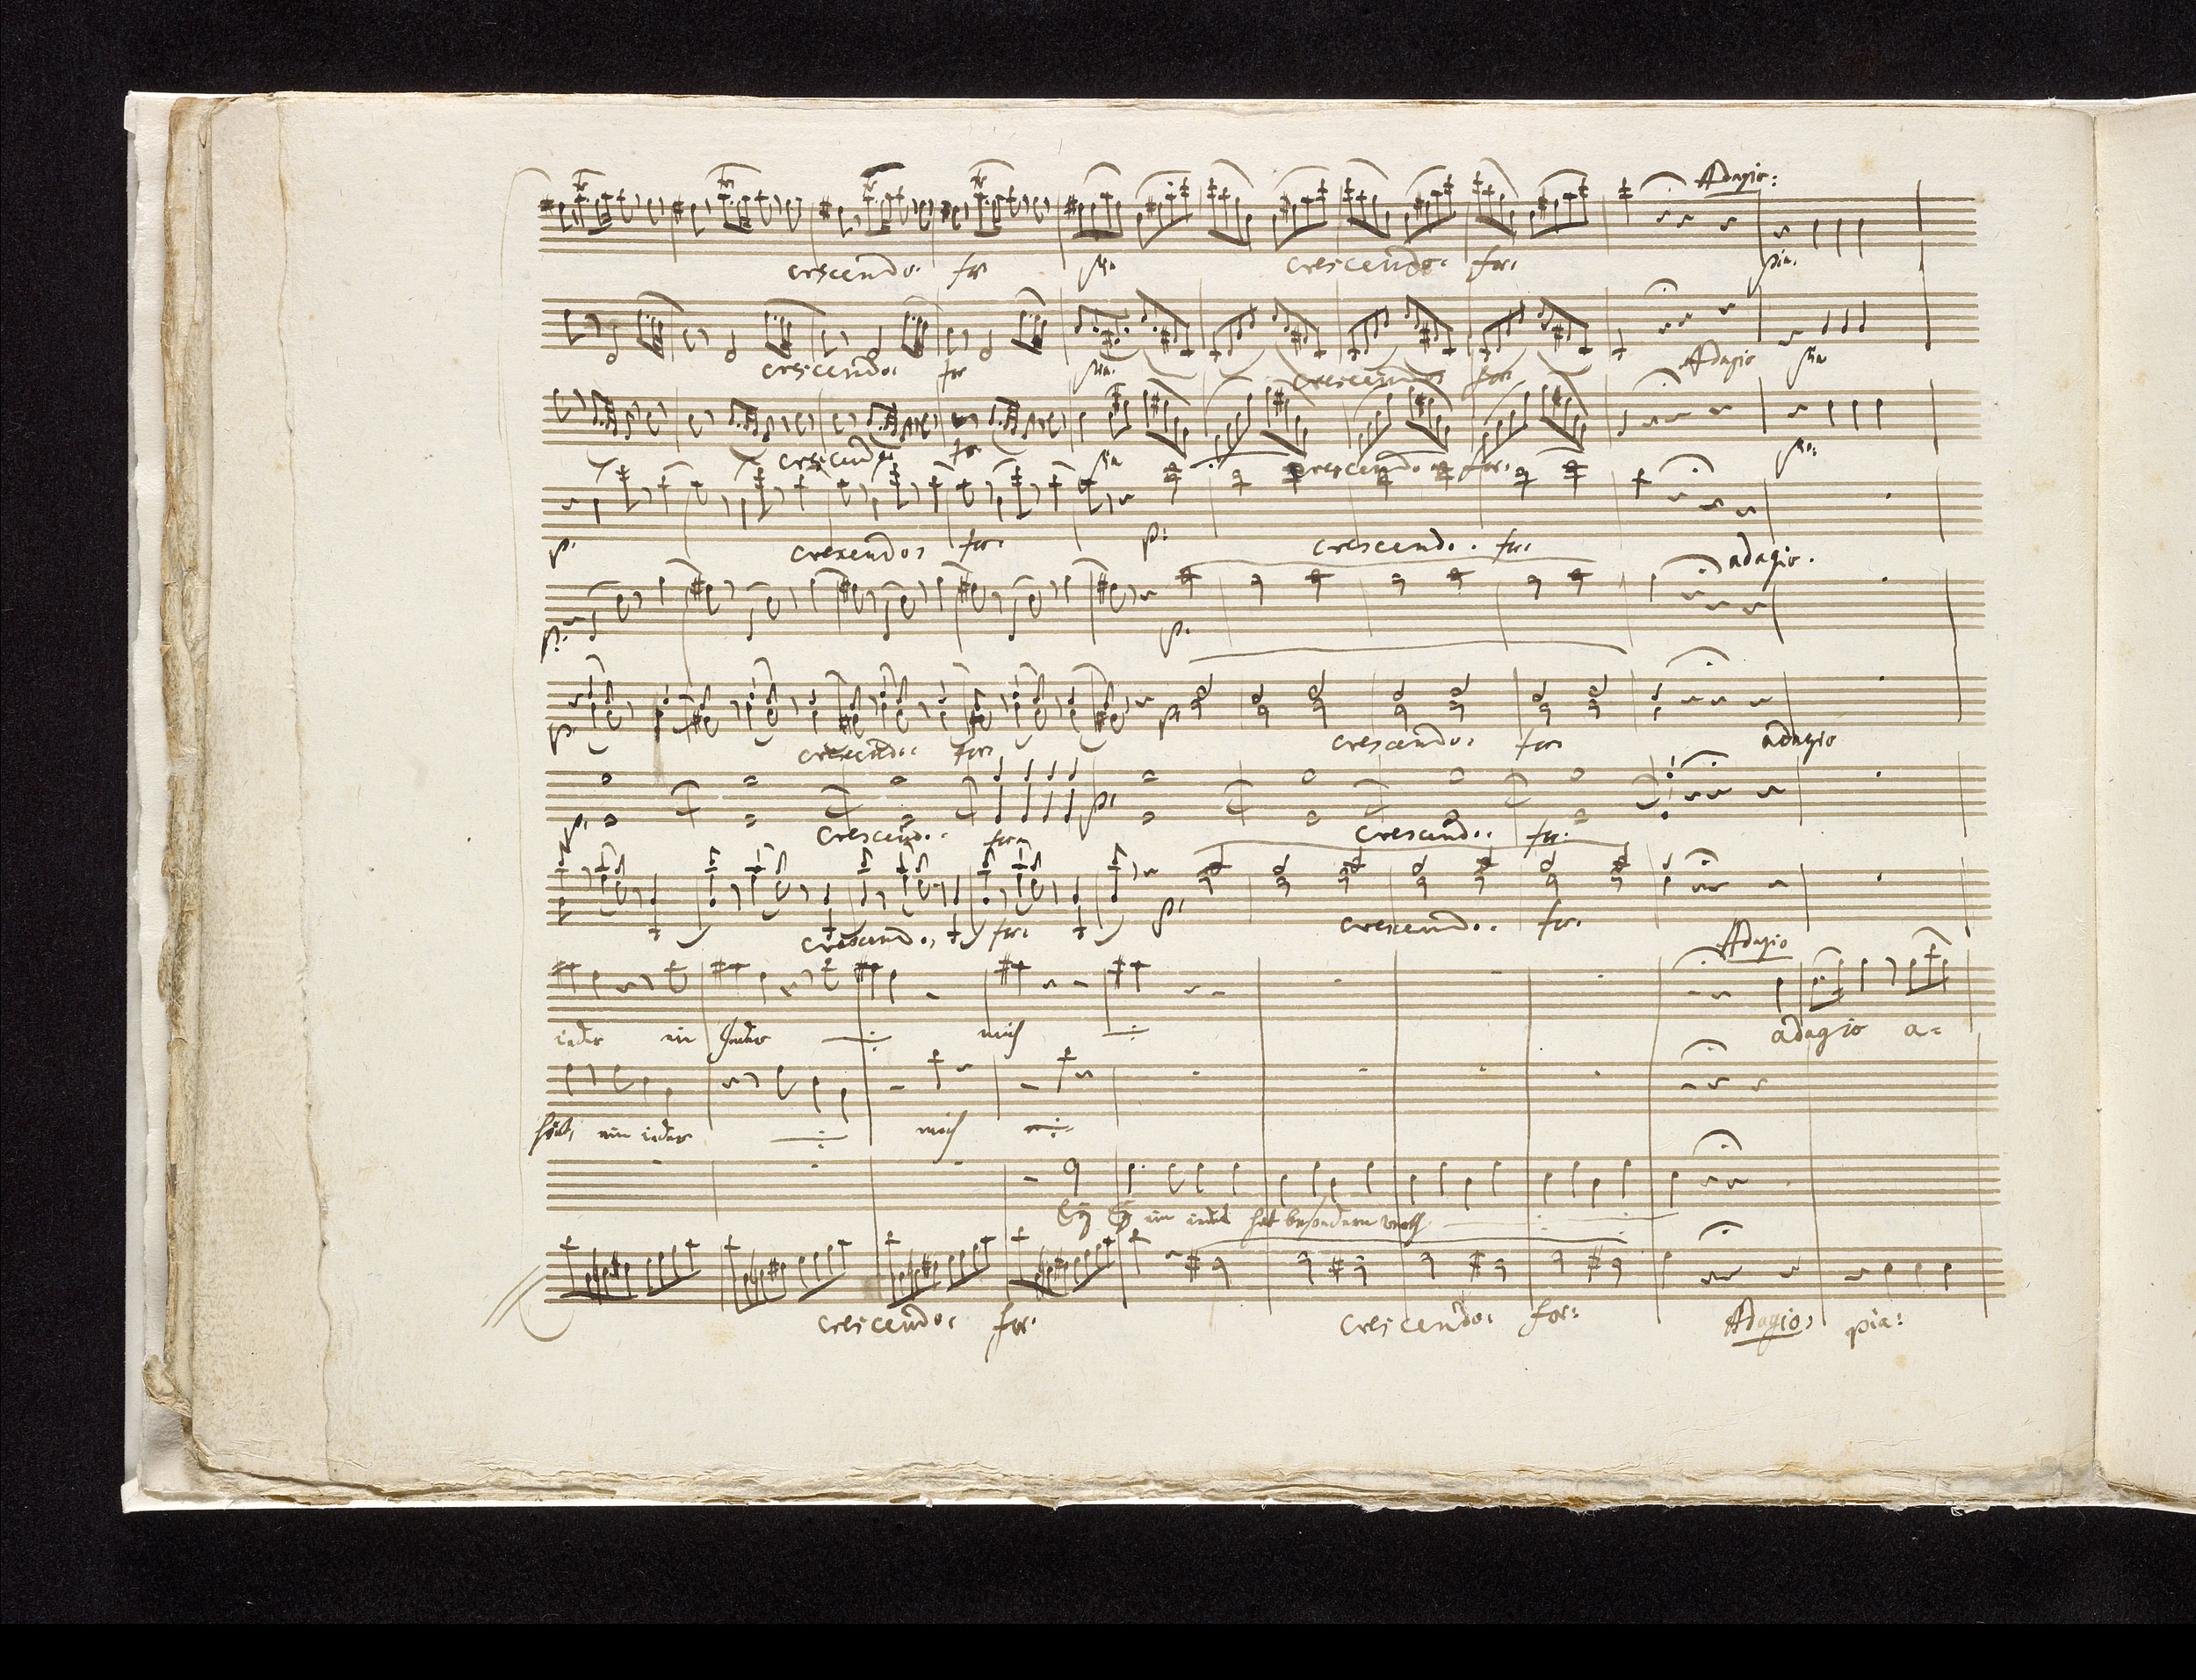 Adagio:
crescendo: for pia: crescendo: for: pia:
crescendo: for pia: crescendo: for: Adagio pia
crescendo: for pia crescendo: for: pia:
p: crescendo: for: p: crescendo: for: adagio.
p: p:
p: crescendo: for: p: crescendo: for: adagio
p: crescendo: for: p: crescendo: for:
crescendo: for: p: crescendo: for:
Adagio
ieder ein Jeder mich adagio a=
ein ieder mich
Ey Ey ein iedes hat besondern werth
crescendo: for: crescendo: for: Adagio: pia: